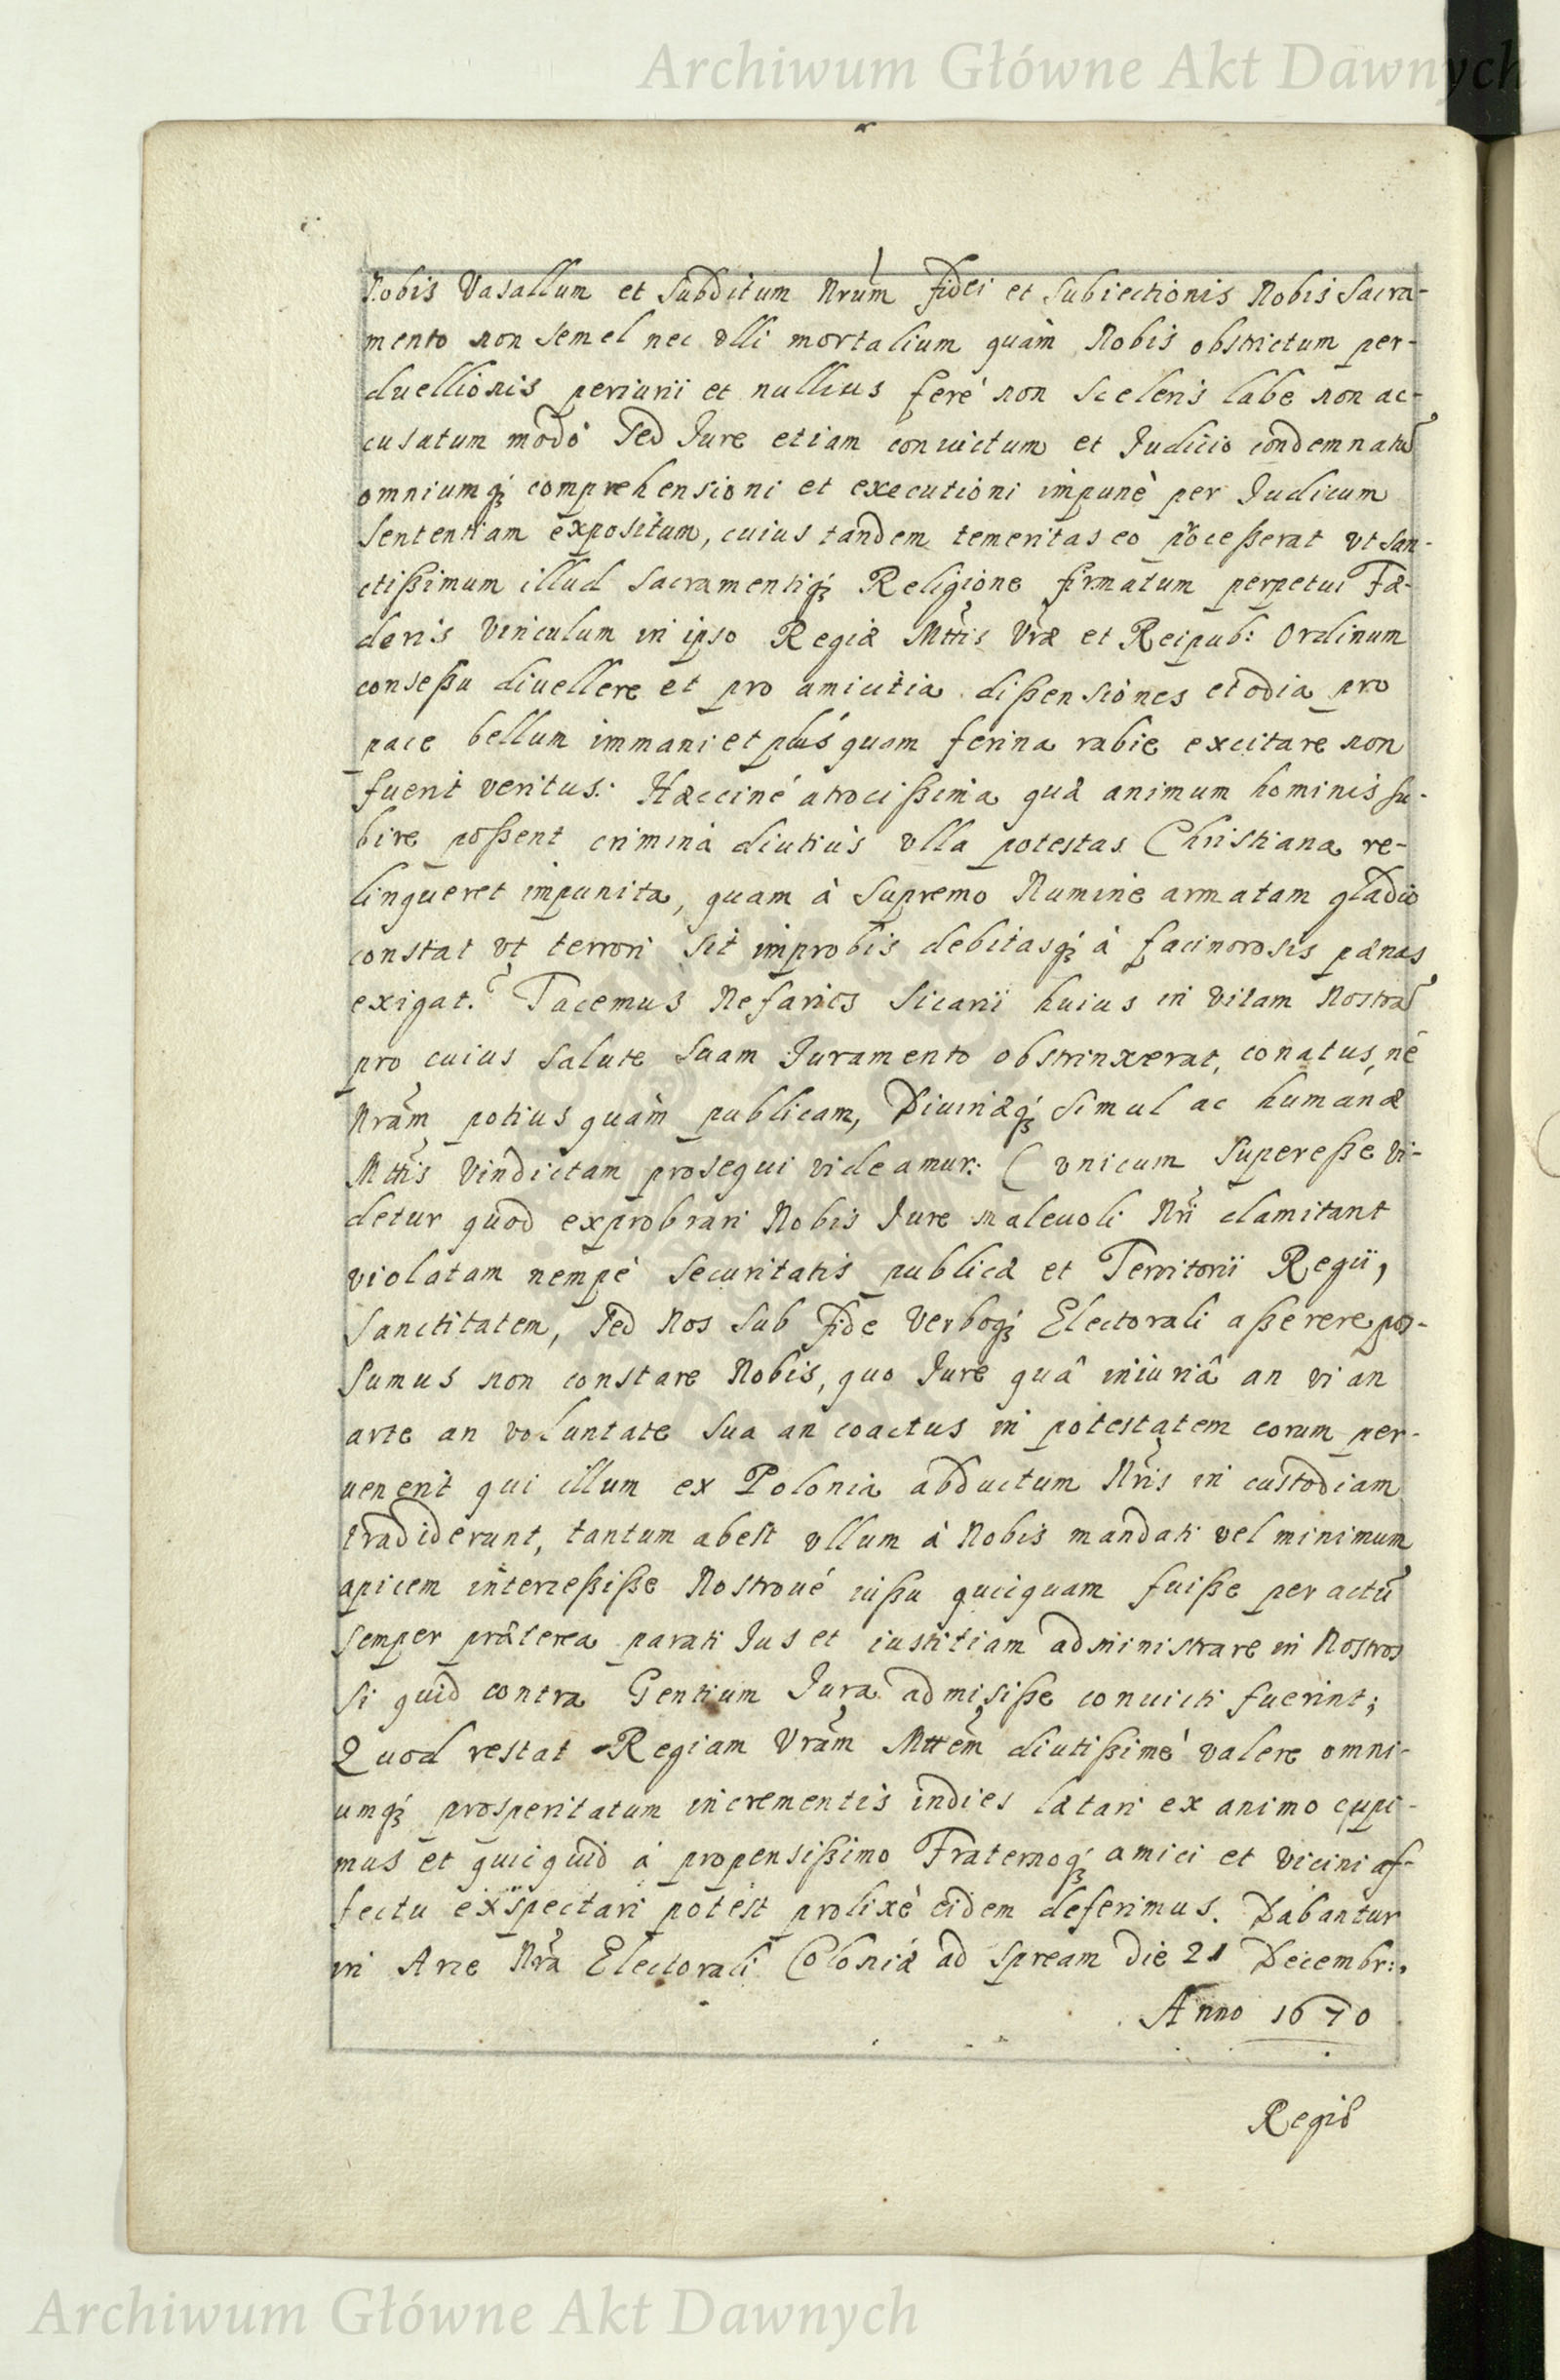 Archiwum Główne Akt Dawnych
Nobis Vasallum et Subditum Nrum fidei et Subiectionis Nobis Sacra-
mento non semel nec ulli mortalium quàm Nobis obstrictum per-
duellionis periurii et nullius ferè non sceleris labe non ac-
cusatum modò sed Jure etiam conuictum et Judicio condemnatū
omniumq; comprehensioni et executioni impunè per Judicum
Sententiam expositum, cuius tandem temeritas eo proceßerat vt San-
ctißimum illud Sacramentiq; Religione firmatum perpetui Fæ-
deris Vinculum in ipso Regiæ Mttis Vræ et Reipub: Ordinum
conseßu diuellere et pro amicitia dißensiones et odia pro
pace bellum immani et plus quam ferina rabie excitare non
fuerit veritus: Hæcciné atrocißima quæ animum hominis su-
bire poßent crimina diutius vlla potestas Christiana re-
linqueret impunita, quam à Supremo Numine armatam gladio
constat vt terrori sit improbis debitasq; à facinorosis pænas
exigat? Tacemus Nefarios Sicarii huius in vitam Nostrā
pro cuius Salute Suam Juramento obstrinxerat, conatus, ne
Nram potius quàm publicam, Diuinæq; Simul ac humanæ
Mttis Vindictam prosequi videamur: ( vnicum Supereße vi-
detur quod exprobrari Nobis Jure maleuoli Nri clamitant
violatam nempè Securitatis publicæ et Territorii Regii,
Sanctitatem, Sed Nos Sub fide Verboq; Electorali aßerere pos-
Sumus non constare Nobis, quo Jure quâ iniuriâ an vi an
arte an voluntate Sua an coactus in potestatem eorum per-
uenerit qui illum ex Polonia abductum Nris in custodiam
tradiderunt, tantum abest vllum à Nobis mandati vel minimum
apicem interceßiße Nostroué iußu quicquam fuiße peractū
Semper præterea parati Jus et iustitiam administrare in Nostros
Si quid contra Gentium Jura admisiße conuicti fuerint;
Quod restat Regiam Vram Mttem diutißimè valere omni-
umq; prosperitatum incrementis indies lætari ex animo cupi-
mus et quicquid à propensißimo Fraternoq; amici et vicini af-
fectu exspectari potest prolixè eidem deferimus. Dabantur
in Arce Nra Electorali Coloniæ ad Spream die 21 Decembr:.
Anno 1670
Regiæ
Archiwum Główne Akt Dawnych